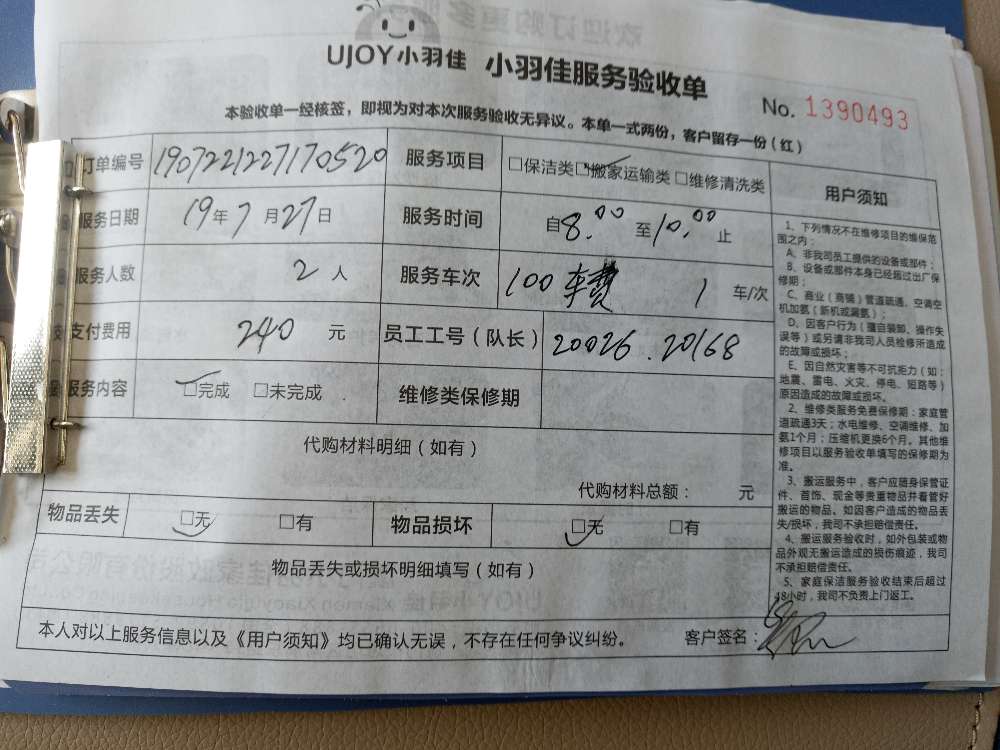 UJOY小羽佳 小羽佳服务验收单
No. 1390493
本验收单一经核签，即视为对本次服务验收无异议。本单一式两份，客户留存一份（红）
订单编号 190722122717052０ 服务项目 □保洁类 □搬家运输类 □维修清洗类
服务日期 19年7月27日 服务时间 自8:00至10:00止
服务人数 2人 服务车次 100车费 1车/次
支付费用 240元 员工工号（队长） 20026.20168
服务内容 □完成 □未完成 维修类保修期
代购材料明细（如有）
代购材料总额： 元
物品丢失 □无 □有 物品损坏 □无 □有
物品丢失或损坏明细填写（如有）
本人对以上服务信息以及《用户须知》均已确认无误，不存在任何争议纠纷。 客户签名：
用户须知
1、下列情况不在维修项目的维保范
围之内：
A、非我司员工提供的设备或部件；
B、设备或部件本身已经超过出厂保
修期；
C、商业（商铺）管道疏通、空调空
机加氨（新机或漏氨）；
D、因客户行为（擅自装卸、操作失
误等）或另请非我司人员检修所造成
的故障或损坏；
E、因自然灾害等不可抗拒力（如：
地震、雷电、火灾、停电、短路等）
原因造成的故障或损坏。
2、维修类服务免费保修期：家庭管
道疏通3天；水电维修、空调维修、加
氨1个月；压缩机更换6个月。其他维
修项目以服务验收单填写的保修期为
准。
3、搬运服务中，客户应随身保管证
件、首饰、现金等贵重物品并看管好
搬运的物品。如因客户造成的物品丢
失/损坏，我司不承担赔偿责任。
4、搬运服务验收时，如外包装或物
品外观无搬运造成的损伤痕迹，我司
不承担赔偿责任。
5、家庭保洁服务验收结束后超过
48小时，我司不负责上门返工。